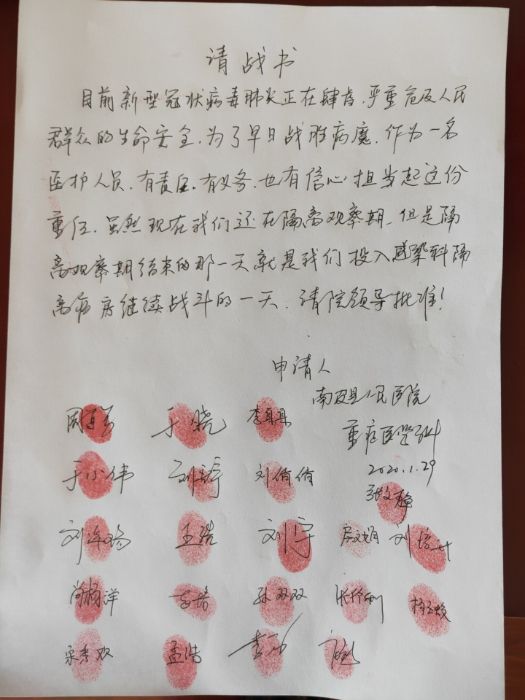 请战书
目前新型冠状病毒肺炎正在肆虐,严重危及人民
群众的生命安全,为了早日战胜病魔,作为一名
医护人员,有责任,有义务,也有信心担当起这份
重任。虽然现在我们还在隔离观察期,但是隔
离观察期结束的那一天就是我们投入感染科隔
离病房继续战斗的一天,请院领导批准!
申请人
南皮县人民医院
重症医学科
2020.1.29
于晓
刘倩倩
王浩
刘宁
孙双双
孟浩